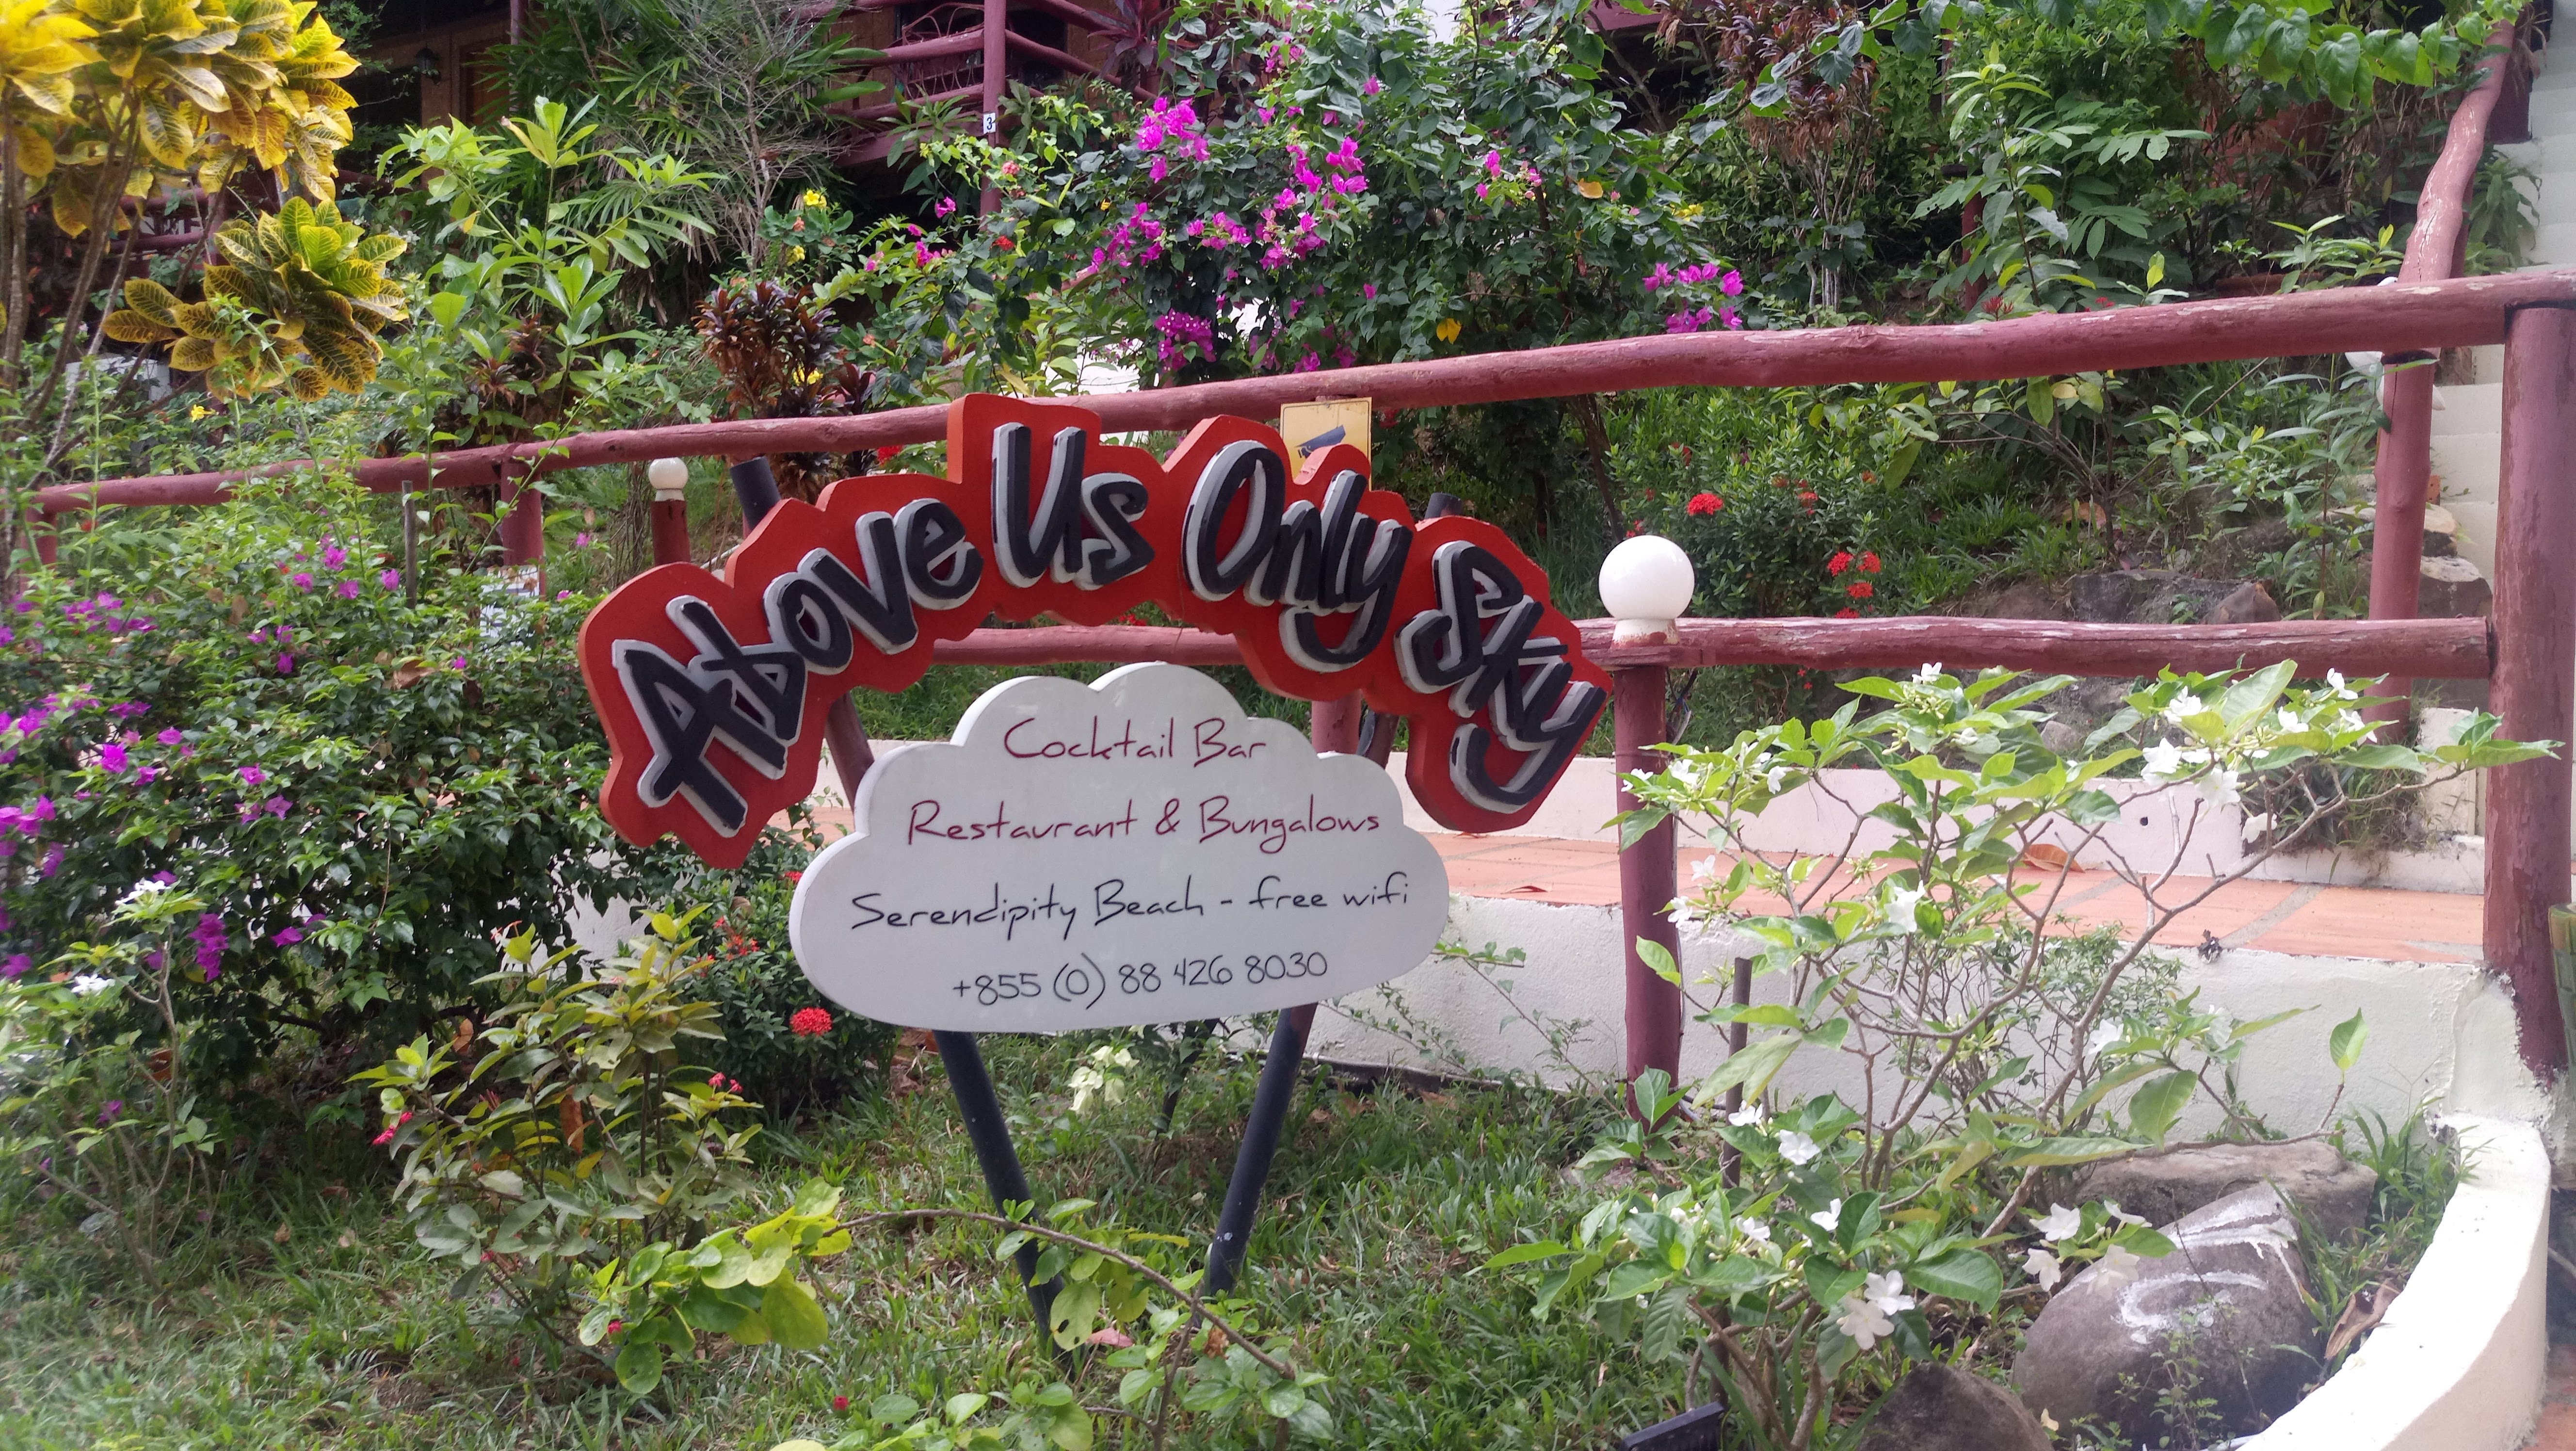 3
Above Us Only Sky
Cocktail Bar
Restaurant & Bungalows
Serendipity Beach - free wifi
+855 (0) 88 426 8030